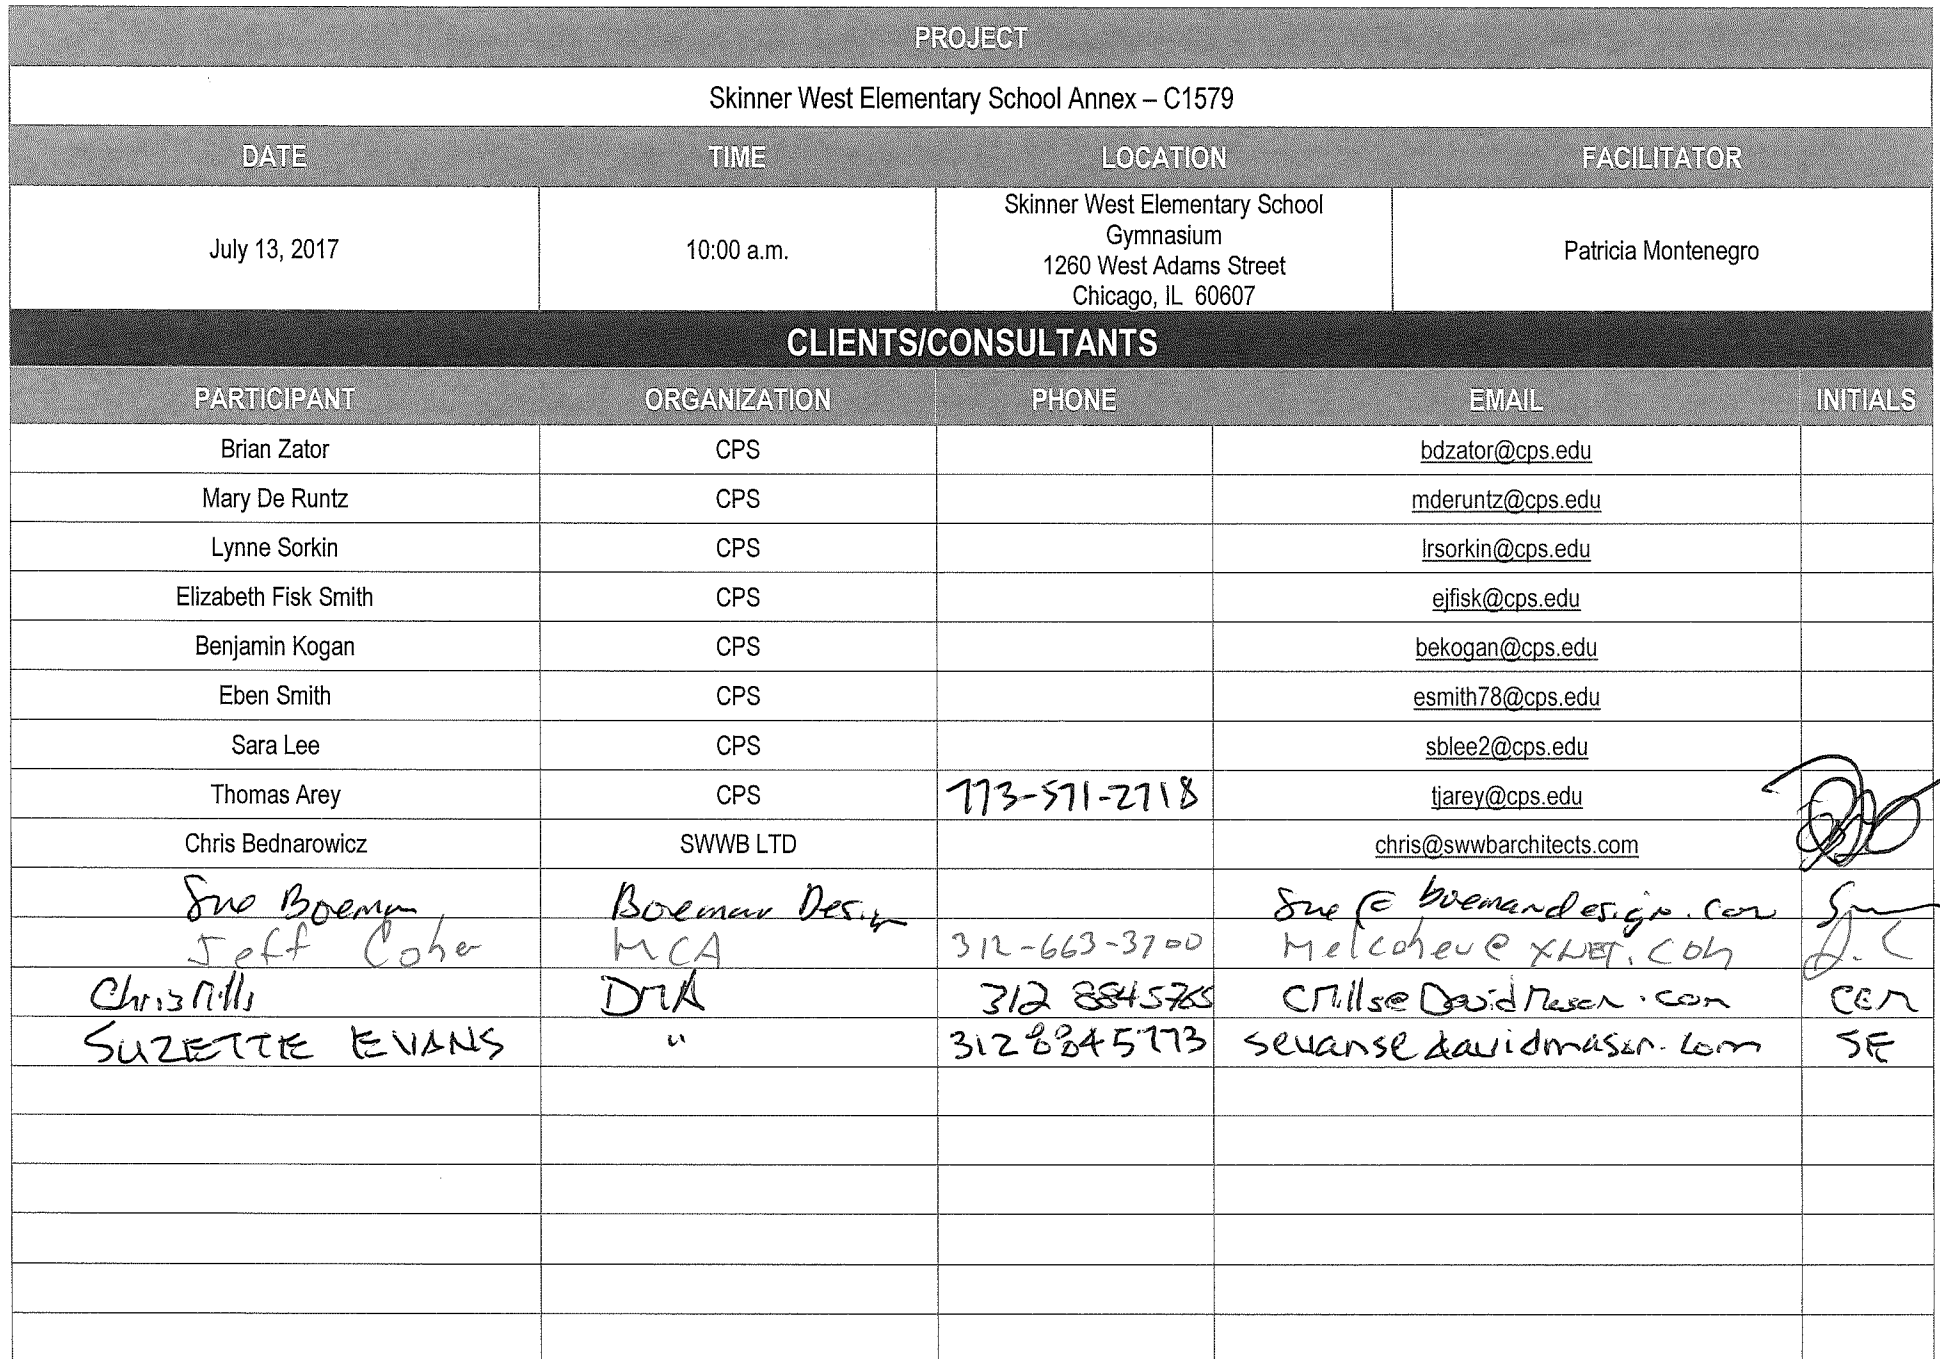 PROJECT
Skinner West Elementary School Annex – C1579
DATE TIME LOCATION FACILITATOR
July 13, 2017 10:00 a.m. Skinner West Elementary School
Gymnasium
1260 West Adams Street
Chicago, IL 60607 Patricia Montenegro
CLIENTS/CONSULTANTS
PARTICIPANT ORGANIZATION PHONE EMAIL INITIALS
Brian Zator CPS bdzator@cps.edu
Mary De Runtz CPS mderuntz@cps.edu
Lynne Sorkin CPS lrsorkin@cps.edu
Elizabeth Fisk Smith CPS ejfisk@cps.edu
Benjamin Kogan CPS bekogan@cps.edu
Eben Smith CPS esmith78@cps.edu
Sara Lee CPS sblee2@cps.edu
Thomas Arey CPS 773-571-2718 tjarey@cps.edu
Chris Bednarowicz SWWB LTD chris@swwbarchitects.com
Sue Boeman Boeman Design Sue@boemandesign.com
Jeff Cohen MCA 312-663-3700 Melcohen@XNET.COM J.C
Chris Mills DMA 312 8845765 CMills@DavidMason.com CEM
SUZETTE EVANS " 312 884 5773 sevans@davidmason.com SE